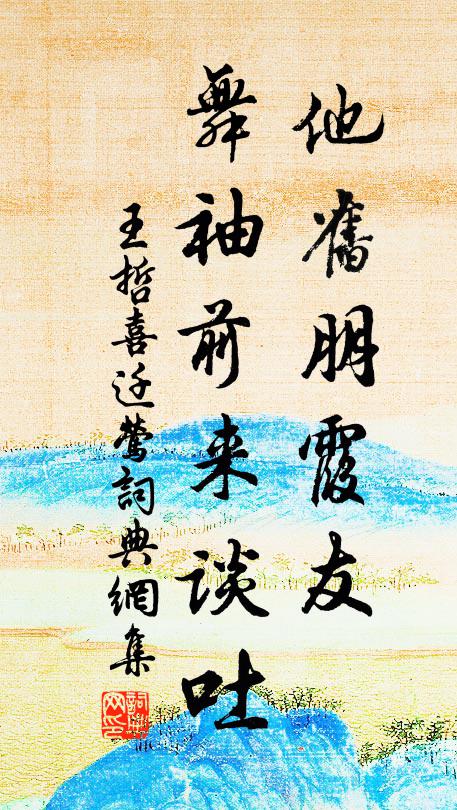 他舊朋霞友
舞袖前来谈吐
王哲喜迁鶯詞典網集